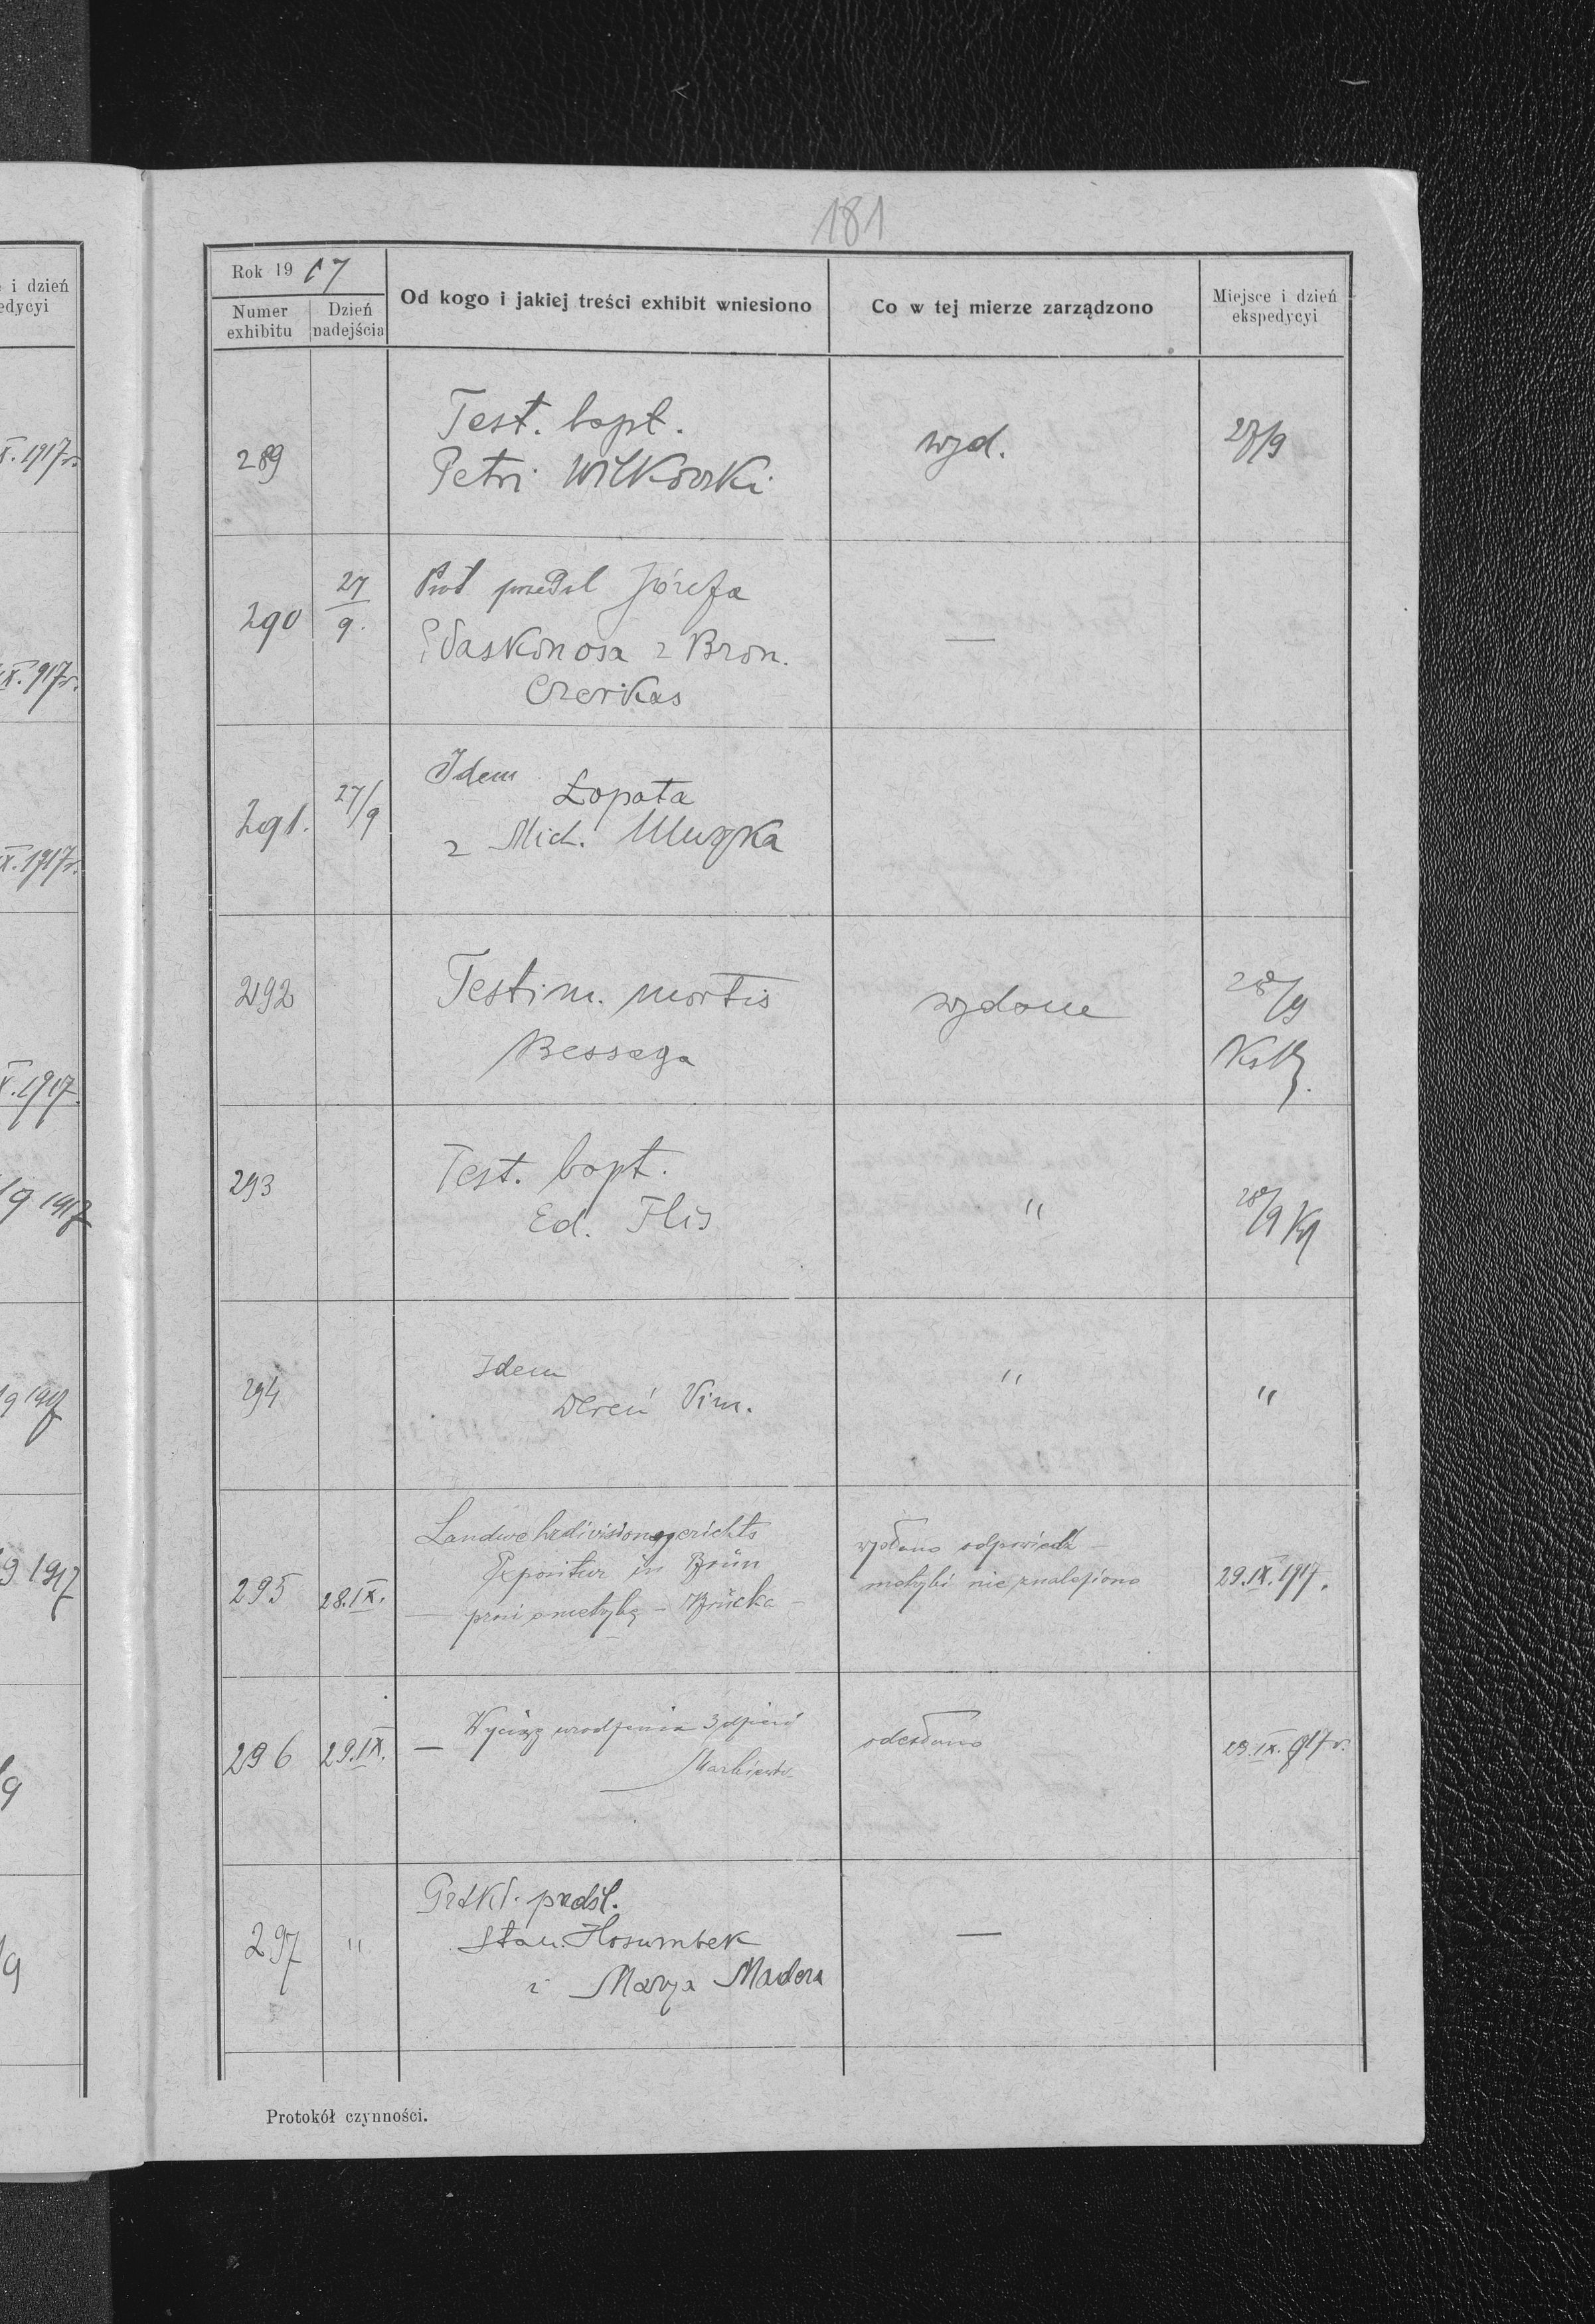 181
i dzień
edycyi
X. 1917r.
IX. 917r.
IX. 1917r.
X. 1917
/9 1917
/9 1917
9 1917
/9
/9
Rok 19 17
Numer exhibitu
Dzień nadejścia
Od kogo i jakiej treści exhibit wniesiono
Co w tej mierze zarządzono
Miejsce i dzień ekspedycyi
289
Test. bapt.
Petri Wilkowski
wyd.
27/9
290
27/9.
Prot przedśl Józefa
Płaskonosa z Bron.
Czerkas
—
291.
27/9
Idem
Łopata
z Mich. Muzyka
292
Testim. mortis
Bessaga
wydane
28/9
293
Test. bapt.
Ed. Flis
"
28/9
294
Idem
Dereń Vinc.
"
"
295
28.IX.
Landwehrdivisionsgerichts
Expositur in Brün
— prosi o metrykę — Brücka —
wysłano odpowiedź —
metryki nie znaleziono
29.IX.1917.
296
29.IX.
— Wyciąg urodzenia 3 dzieci
odesłano
29.IX.917r.
297
"
Prtkł. predśl.
Stan. Hosumbek
i Marya Madera
—
Protokół czynności.